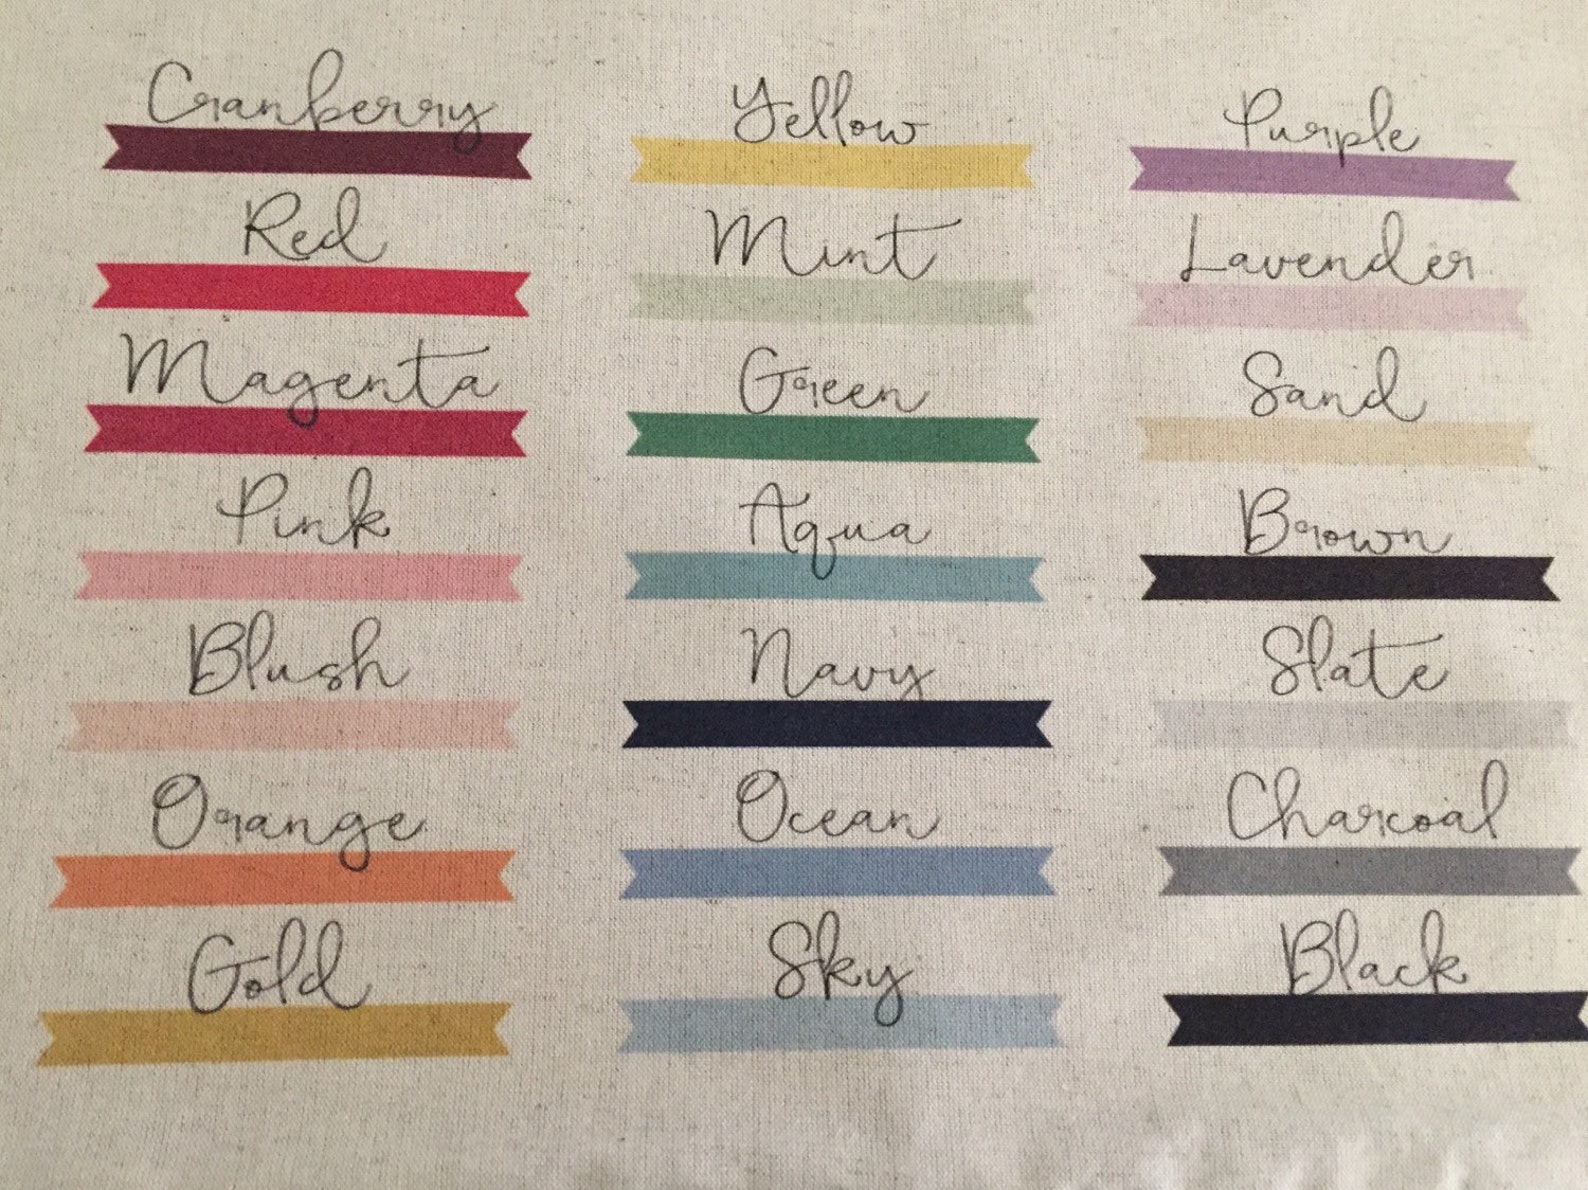 Cranberry
Red
Magenta
Pink
Blush
Orange
Gold
Yellow
Mint
Green
Aqua
Navy
Ocean
Sky
Purple
Lavender
Sand
Brown
Slate
Charcoal
Black